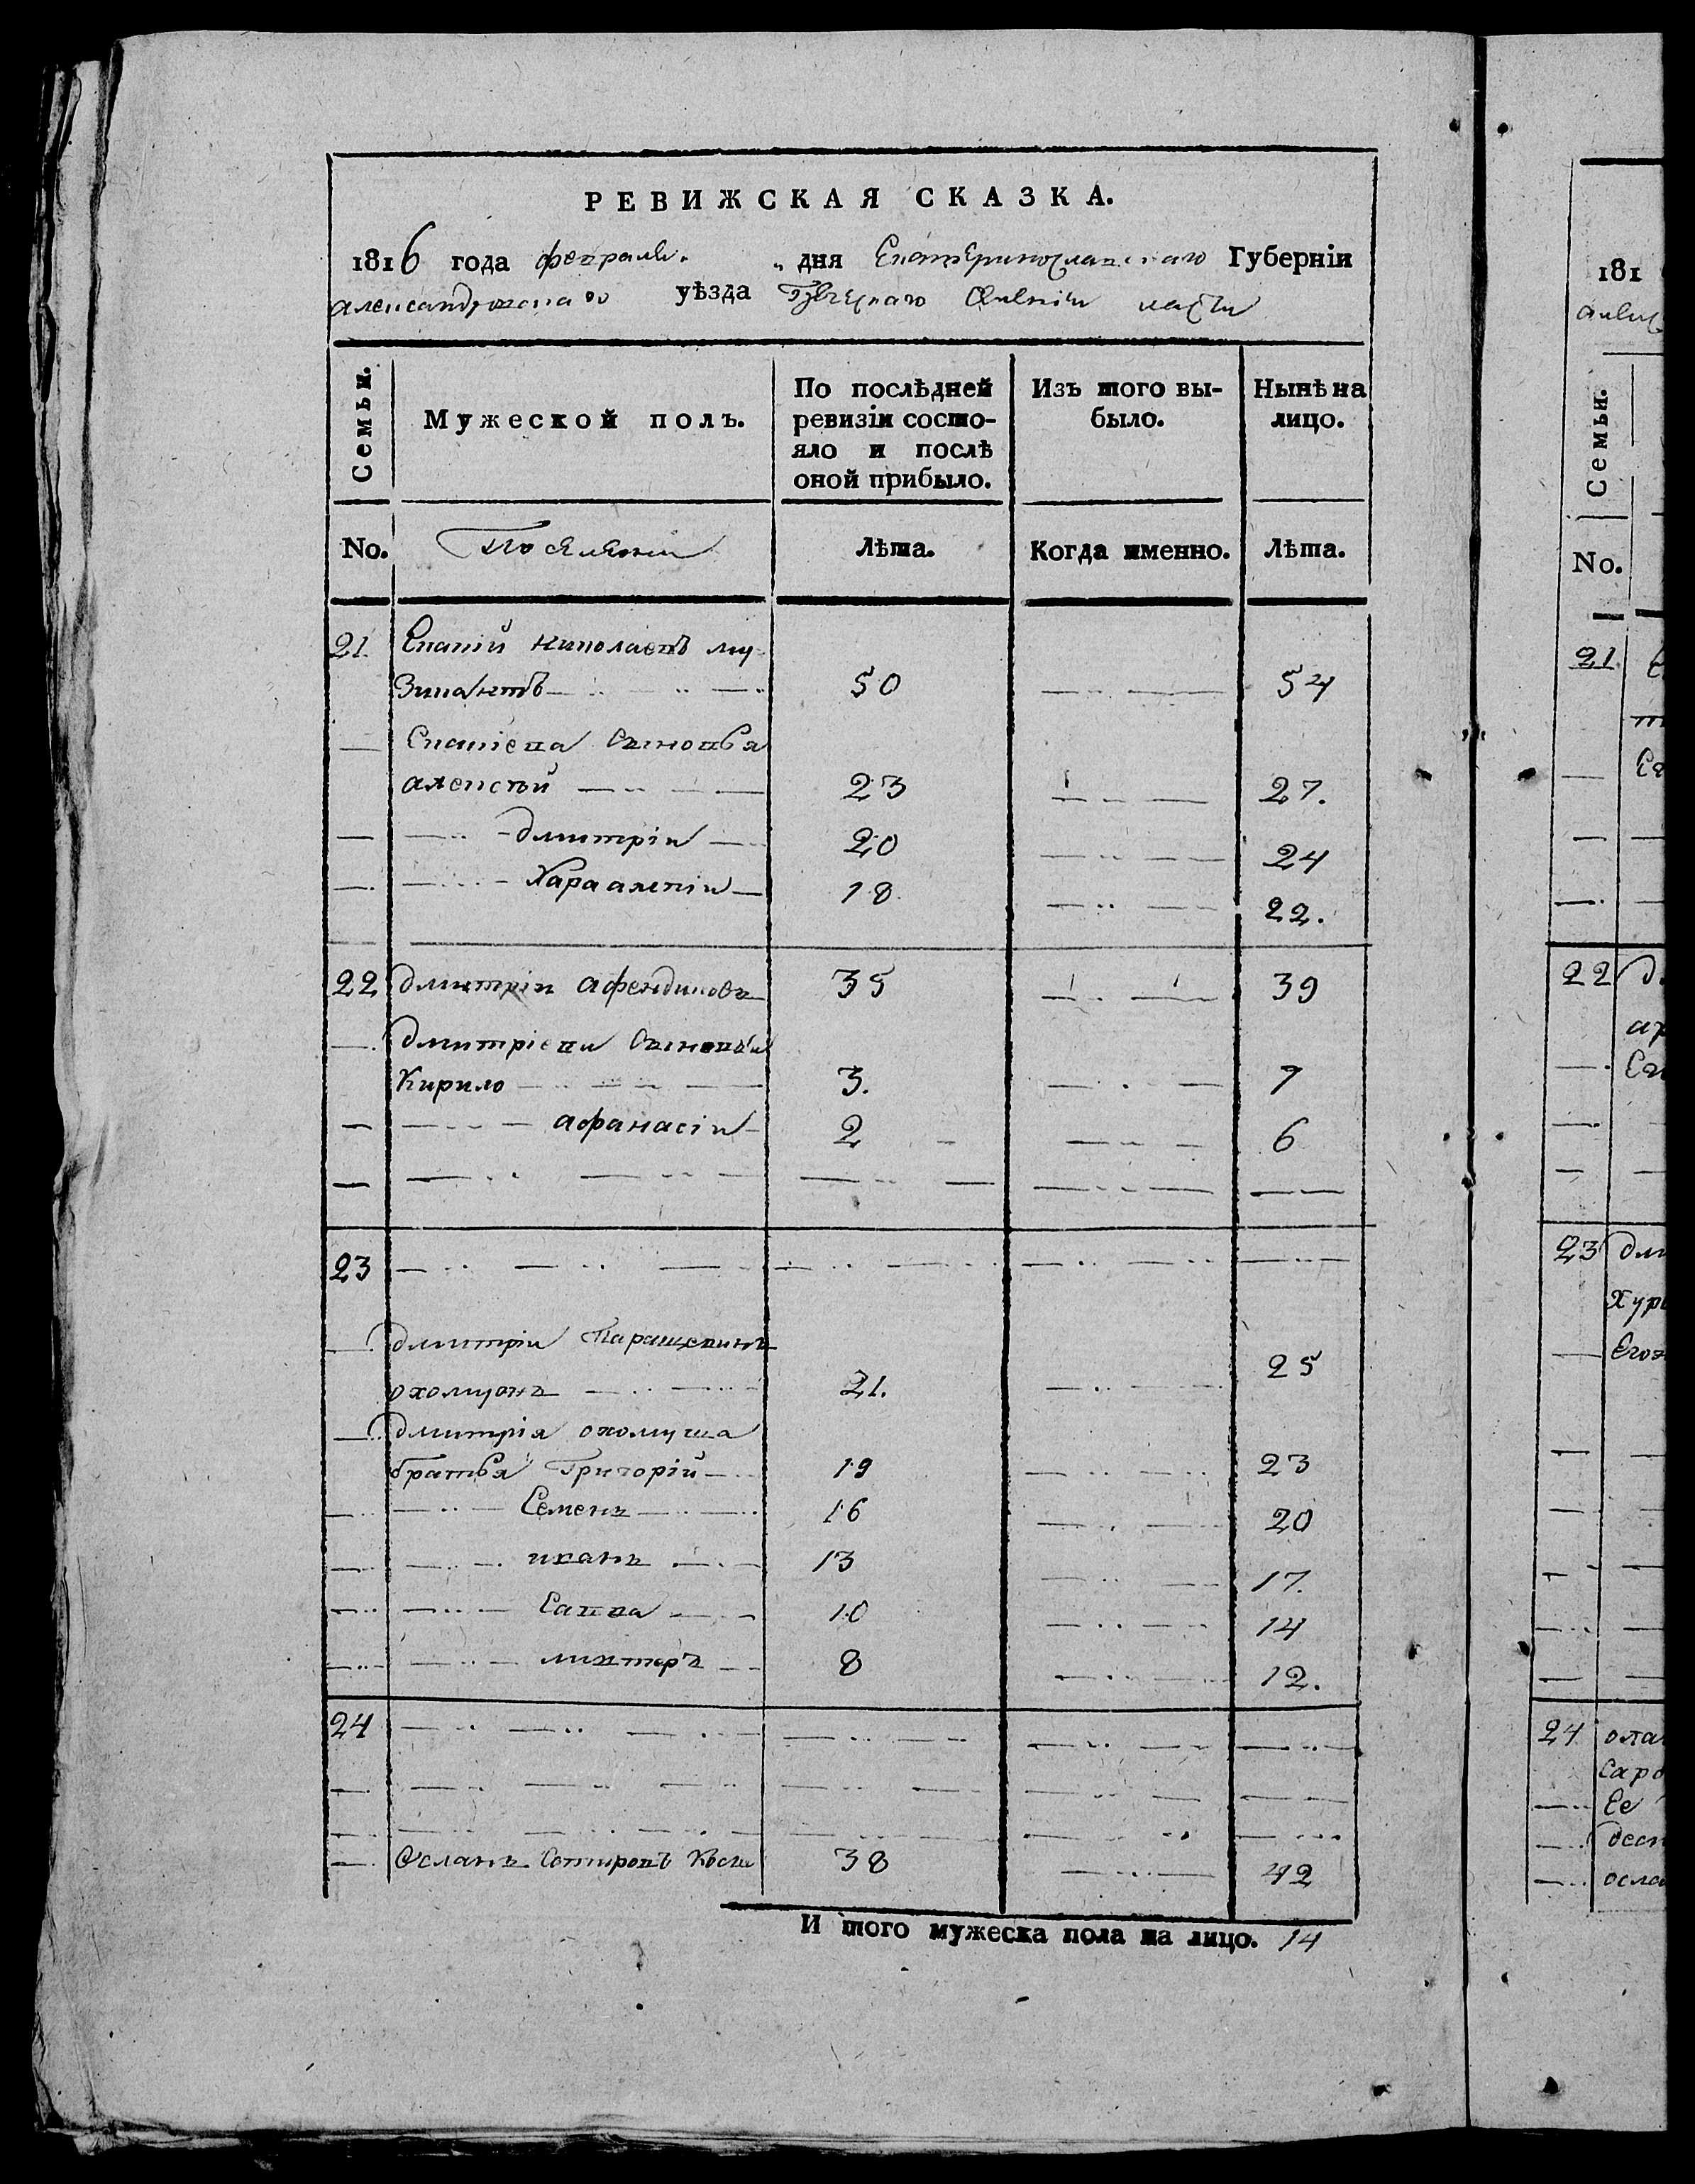 РЕВИЖСКАЯ СКАЗКА.
1816 года февраля „ дня Екатеринославскаго Губерніи
александровскаго уѣзда Греческаго части
Семьи.
Мужеской полъ.
По послѣдней ревизіи состояло и послѣ оной прибыло.
Изъ того выбыло.
Нынѣ на лицо.
No. Лѣта. Когда именно. Лѣта.
21 Николаевъ му-
зикантъ 50 54
сыновья
алексѣй 23 27.
— дмитріи 20 24
— Харалампіи 18 22.
22 дмитріи афендиковъ 35 39
дмитріеви сыновьи
Кирило 3. 7
— афанасіи 2 6
23
дмитріи Паращевинъ 25
21.
дмитрія
братья Григорій 19 23
— Семенъ 16 20
— иванъ 13 17.
— Савва 10 14
— 8 12.
24
Асланъ Сотировъ 38 42
И того мужеска пола на лицо. 14
181
Семьи.
No.
21
22
ар
23 дми
Хур
Его
24
Ее